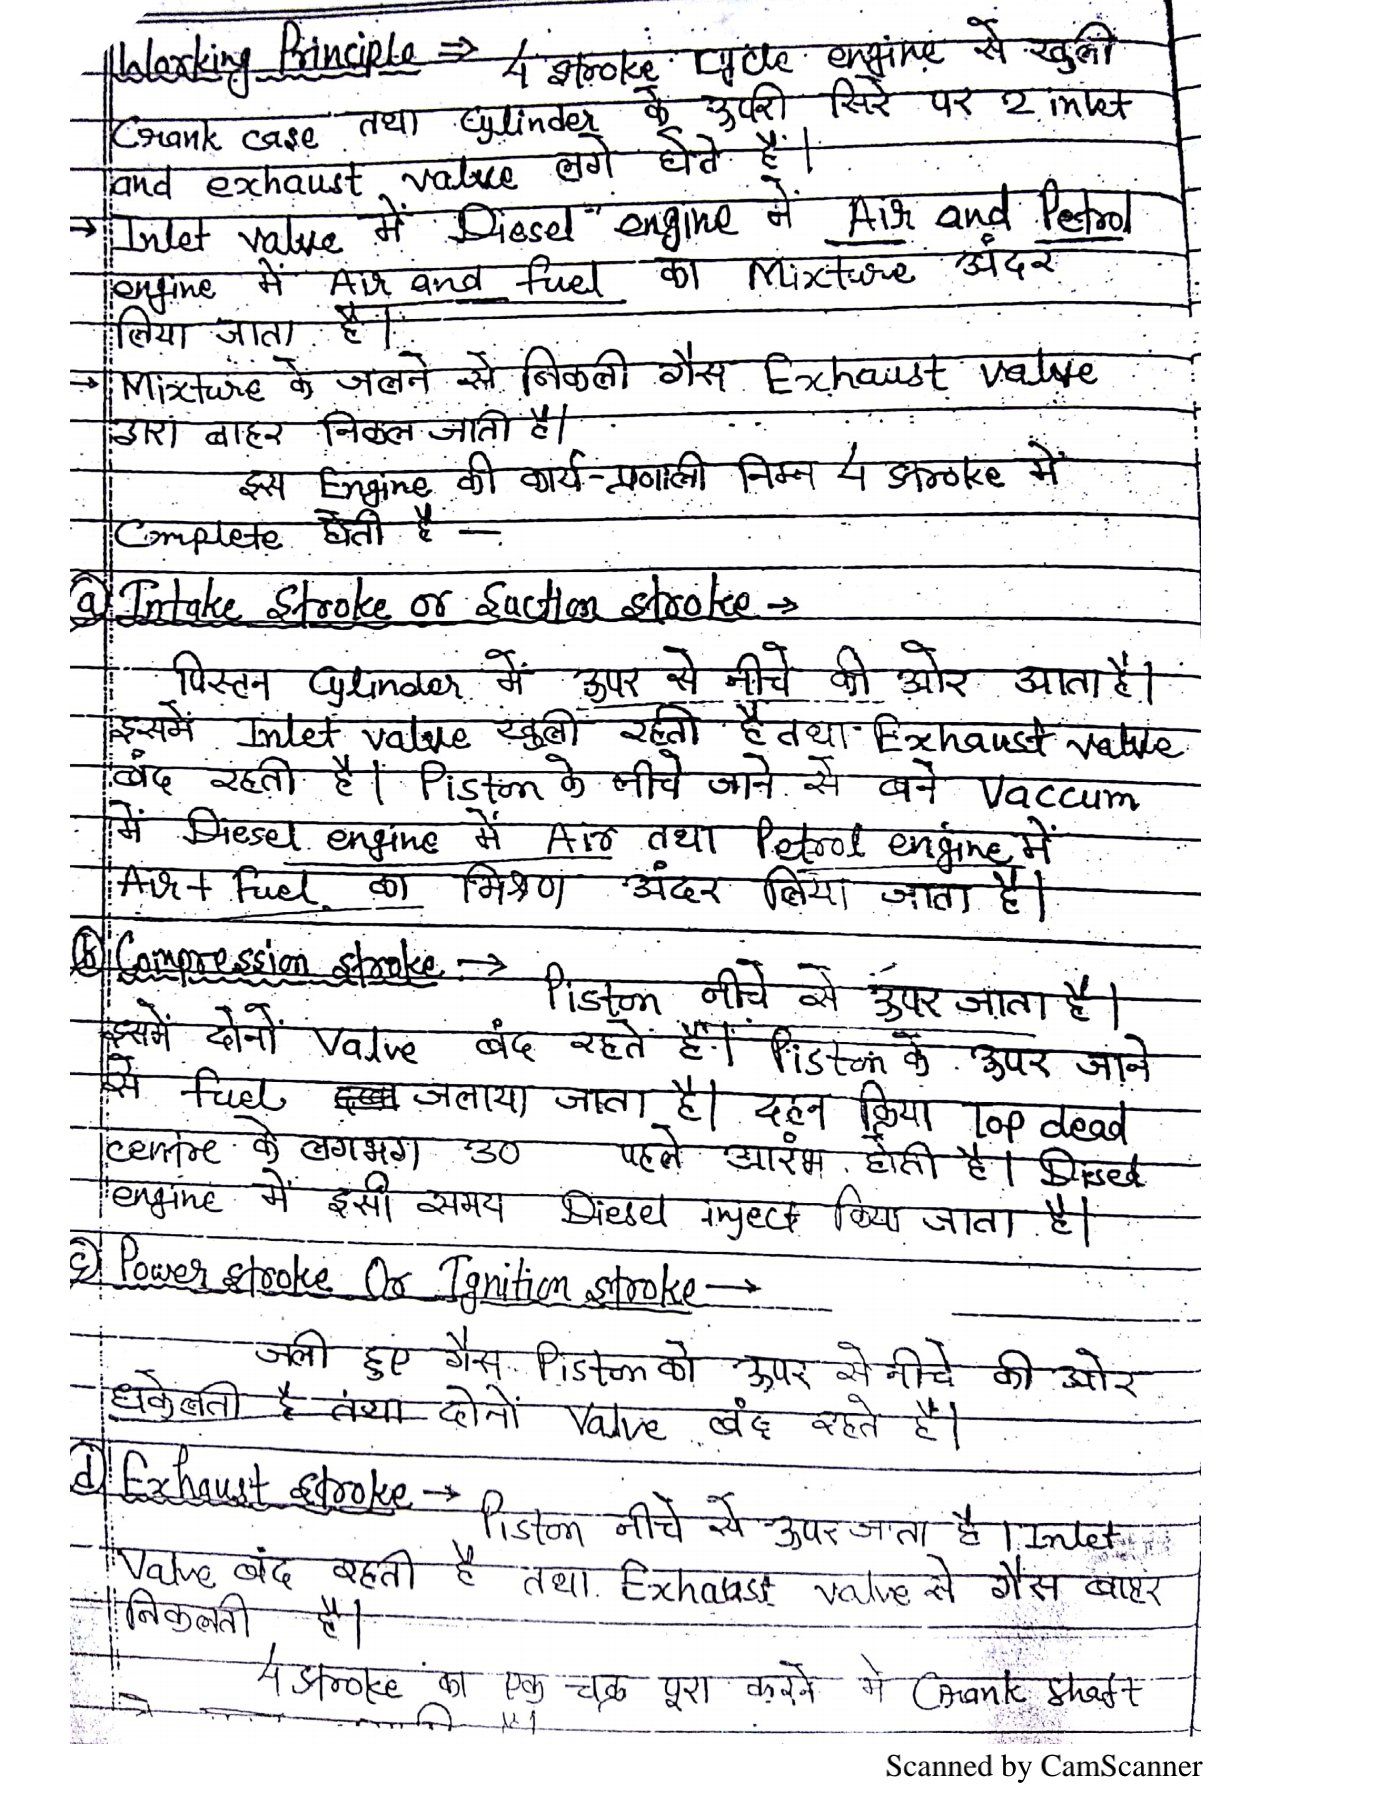 Working Principle ⇒ 4 stroke cycle engine से खुली
Crank case तथा cylinder के ऊपरी सिरे पर 2 inlet
and exhaust valve लगे होते हैं।
→ Inlet valve में Diesel engine में Air and Petrol
engine में Air and fuel का Mixture अंदर
लिया जाता है।
→ Mixture के जलने से निकली गैस Exhaust valve
द्वारा बाहर निकल जाती है।
इस Engine की कार्य-प्रणाली निम्न 4 stroke में
Complete होती है —
(a) Intake Stroke or Suction stroke →
पिस्टन Cylinder में ऊपर से नीचे की ओर आता है।
इसमें Inlet valve खुली रहती है तथा Exhaust valve
बंद रहती है। Piston के नीचे जाने से बने Vaccum
में Diesel engine में Air तथा Petrol engine में
Air + fuel का मिश्रण अंदर लिया जाता है।
(b) Compression stroke →
Piston नीचे से ऊपर जाता है।
इसमें दोनों Valve बंद रहते हैं। Piston के ऊपर जाने
से fuel जलाया जाता है। दहन क्रिया Top dead
centre के लगभग 30 पहले आरंभ होती है। Diesel
engine में इसी समय Diesel inject किया जाता है।
(c) Power stroke Or Ignition stroke →
जली हुए गैस Piston को ऊपर से नीचे की ओर
धकेलती है तथा दोनों Valve बंद रहते हैं।
(d) Exhaust stroke →
Piston नीचे से ऊपर जाता है। Inlet
Valve बंद रहती है तथा Exhaust valve से गैस बाहर
निकलती है।
4 stroke का एक चक्र पूरा करने में Crank shaft
Scanned by CamScanner